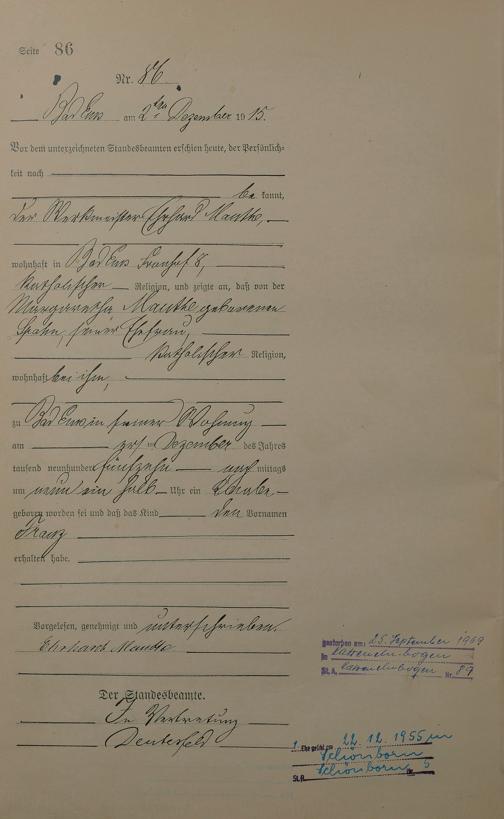 Seite 86
Nr. 86
Bad Ems am 2ten Dezember 1915.
Vor dem unterzeichneten Standesbeamten erschien heute, der Persönlich-
keit nach
be kannt,
der Werkmeister Ehrhard Mauthe,
wohnhaft in Bad Ems 8,
katholischer Religion, und zeigte an, daß von der
Margaretha Mauthe geborenen
Spahn, seiner Ehefrau,
katholischer Religion,
wohnhaft bei ihm,
zu Bad Ems in seiner Wohnung
am Dezember des Jahres
tausend neunhundert fünfzehn nach mittags
um neun ein halb Uhr ein Knabe
geboren worden sei und daß das Kind den Vornamen
Franz
erhalten habe.
Vorgelesen, genehmigt und unterschrieben.
Ehrhard Mauthe
Der Standesbeamte.
In Vertretung
gestorben am: 25. September 1969
in Katzenelnbogen
St. A. Katzenelnbogen Nr. 89
1. Ehe geschl. am 22.12.1955 in
Schönborn
St. A. Schönborn Nr. 5